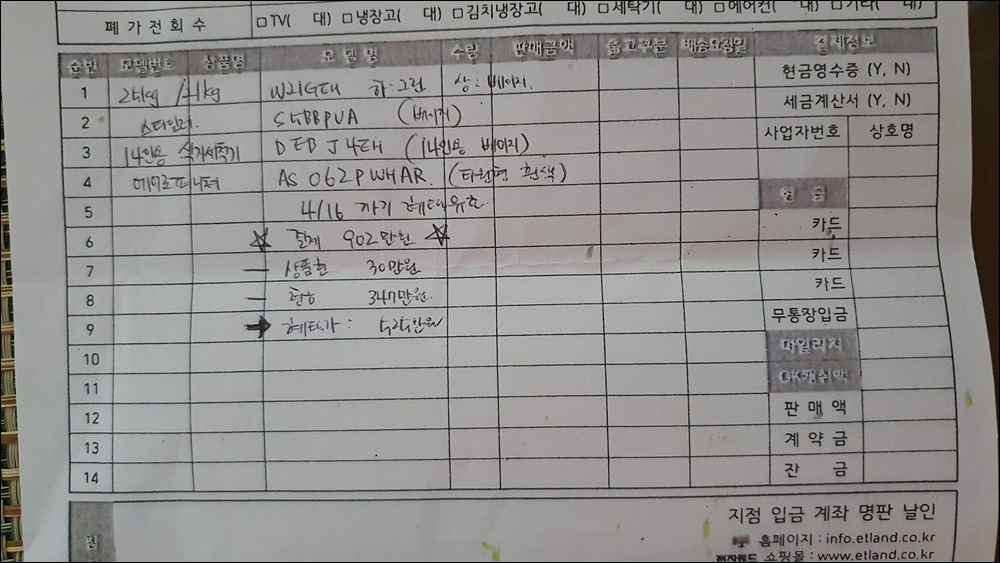 폐가전회수 □TV( 대) □냉장고( 대) □김치냉장고( 대) □세탁기( 대) □에어컨( 대) □기타(
순번 모델번호 상품명 모델명 수량 판매금액 출고구분 배송요청일 결제정보
1 25kg / 21kg W21GEN 하:그린 상:베이지 현금영수증 (Y, N)
2 스타일러. S5BBPUA (베이지) 세금계산서 (Y, N)
3 14인용 식기세척기 DEBJ4EH (14인용 베이지) 사업자번호 상호명
4 에어로퍼니처 AS062PWHAR. (타원형 흰색)
5 4/16 까지 혜택유효.
6 ☆ 결제 902만원 ☆ 카드
7 - 상품권 30만원 카드
8 - 347만원. 카드
9 → 혜택가 : 525만원 무통장입금
10 마일리지
11 OK캐쉬백
12 판매액
13 계약금
14 잔금
지점 입금 계좌 명판 날인
홈페이지 : info.etland.co.kr
전자랜드 쇼핑몰 : www.etland.co.kr